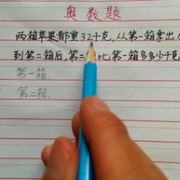 奥数题
两箱苹果都重32千克,从第一箱拿出6
到第二箱后,第二 比第一箱多多少千克
第一箱
第二箱